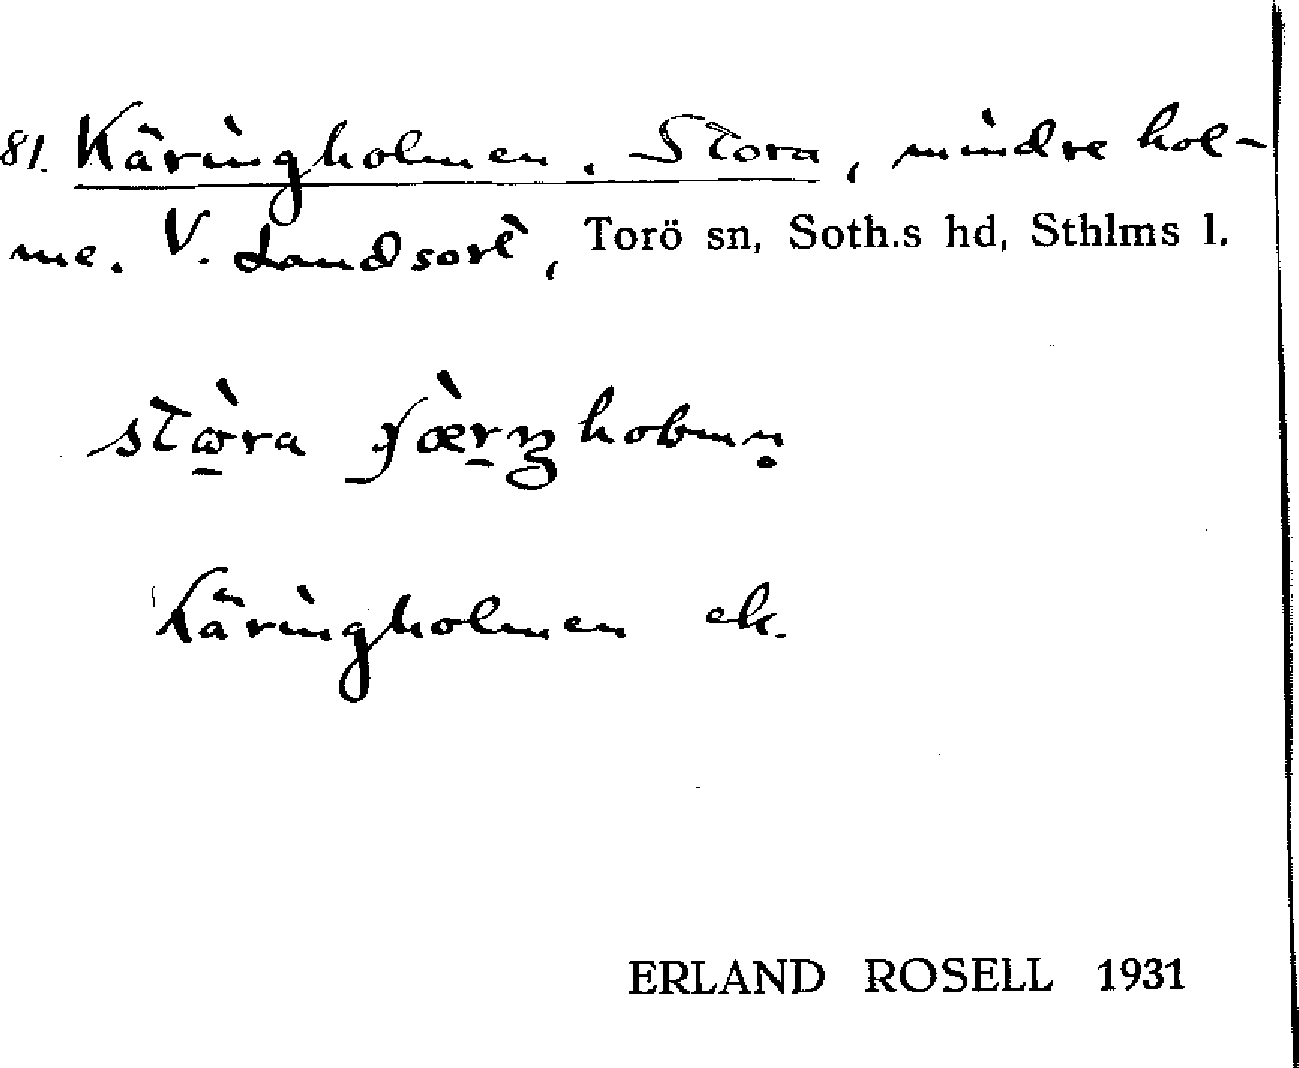 81. Käringholmen, Stora, mindre hol-
me. V. Landsort, Torö sn, Soth.s hd, Sthlms l.
stora
Käringholmen ek.
ERLAND ROSELL 1931